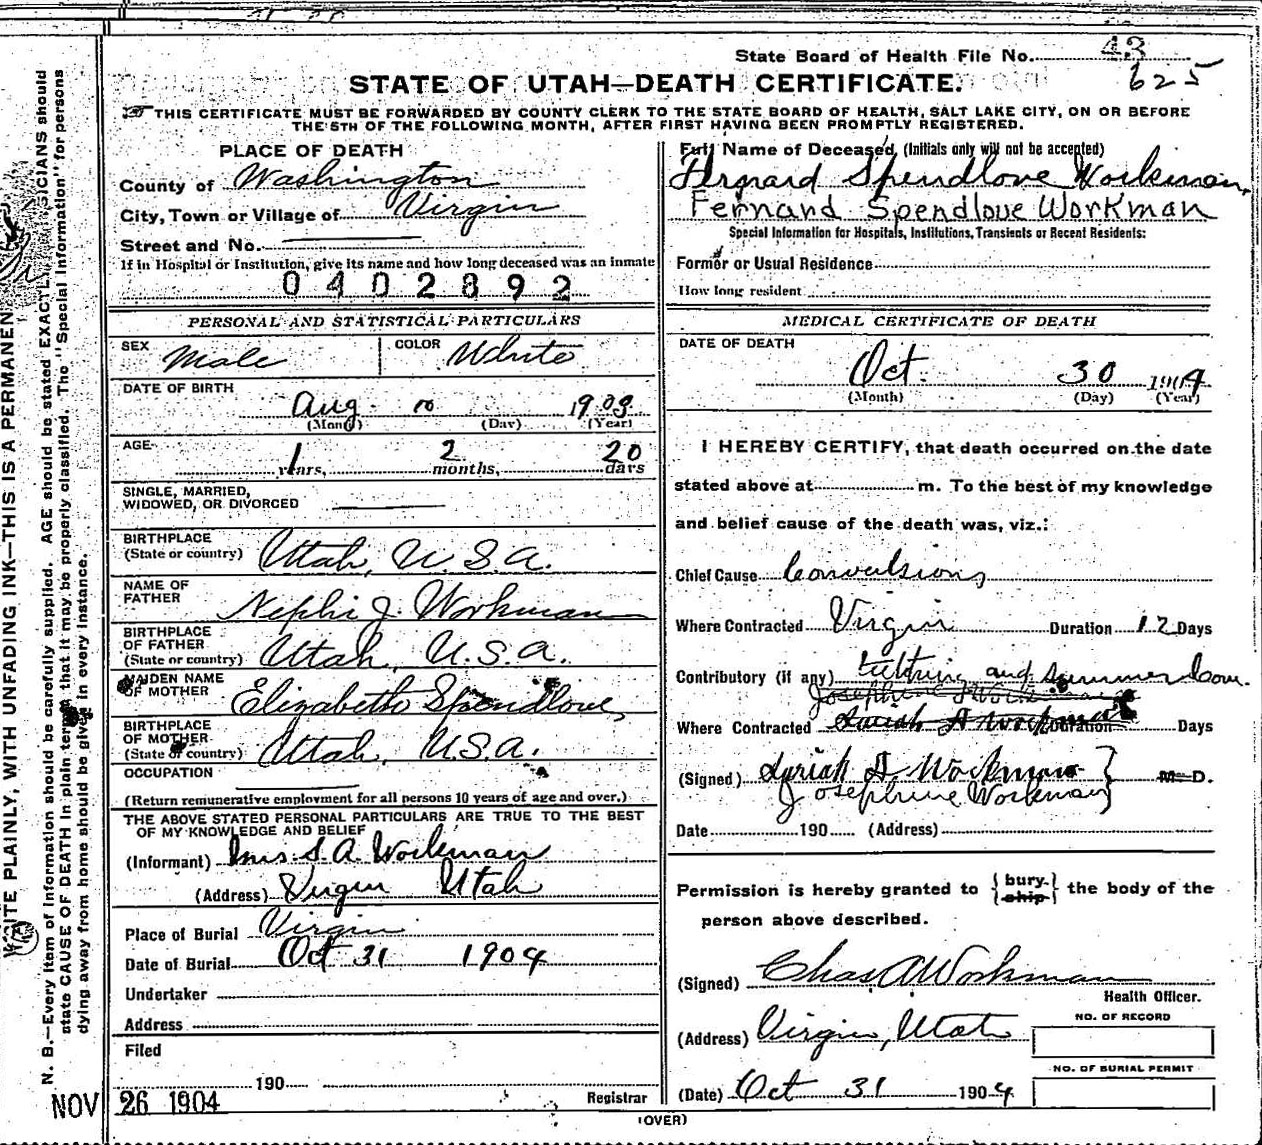 State Board of Health File No. 43
625
STATE OF UTAH—DEATH CERTIFICATE.
THIS CERTIFICATE MUST BE FORWARDED BY COUNTY CLERK TO THE STATE BOARD OF HEALTH, SALT LAKE CITY, ON OR BEFORE
THE 5TH OF THE FOLLOWING MONTH, AFTER FIRST HAVING BEEN PROMPTLY REGISTERED.
PLACE OF DEATH
County of Washington
City, Town or Village of Virgin
Street and No.
If in Hospital or Institution, give its name and how long deceased was an inmate
0402892
PERSONAL AND STATISTICAL PARTICULARS
SEX Male COLOR White
DATE OF BIRTH
Aug. 10 1903
(Month) (Day) (Year)
AGE
1 years, 2 months, 20 days
SINGLE, MARRIED,
WIDOWED, OR DIVORCED
BIRTHPLACE
(State or country) Utah, U.S.A.
NAME OF
FATHER Nephi J. Workman
BIRTHPLACE
OF FATHER
(State or country) Utah, U.S.A.
MAIDEN NAME
OF MOTHER Elizabeth Spendlove
BIRTHPLACE
OF MOTHER
(State or country) Utah, U.S.A.
OCCUPATION
(Return remunerative employment for all persons 10 years of age and over.)
THE ABOVE STATED PERSONAL PARTICULARS ARE TRUE TO THE BEST
OF MY KNOWLEDGE AND BELIEF
(Informant) S. A. Workman
(Address) Virgin Utah
Place of Burial Virgin
Date of Burial Oct 31 1904
Undertaker
Address
Filed
190
Registrar
NOV 26 1904
Full Name of Deceased (Initials only will not be accepted)
Spendlove Workman
Fernand Spendlove Workman
Special Information for Hospitals, Institutions, Transients or Recent Residents:
Former or Usual Residence
How long resident
MEDICAL CERTIFICATE OF DEATH
DATE OF DEATH
Oct. 30 1904
(Month) (Day) (Year)
I HEREBY CERTIFY, that death occurred on the date
stated above at m. To the best of my knowledge
and belief cause of the death was, viz.:
Chief Cause Convulsions
Where Contracted Virgin Duration 12 Days
Contributory (if any) teething and Summer Com.
Josephine Workman
Where Contracted Workman Duration Days
(Signed) Workman M. D.
Josephine Workman
Date 190 (Address)
Permission is hereby granted to {bury / ship} the body of the
person above described.
(Signed) Chas A Workman
Health Officer.
(Address) Virgin, Utah
NO. OF RECORD
NO. OF BURIAL PERMIT
(Date) Oct 31 1904
(OVER)
WRITE PLAINLY, WITH UNFADING INK—THIS IS A PERMANEN
N. B.—Every item of information should be carefully supplied. AGE should be stated EXACTLY. SICIANS should
state CAUSE OF DEATH in plain terms that it may be properly classified. The "Special Information" for persons
dying away from home should be given in every instance.